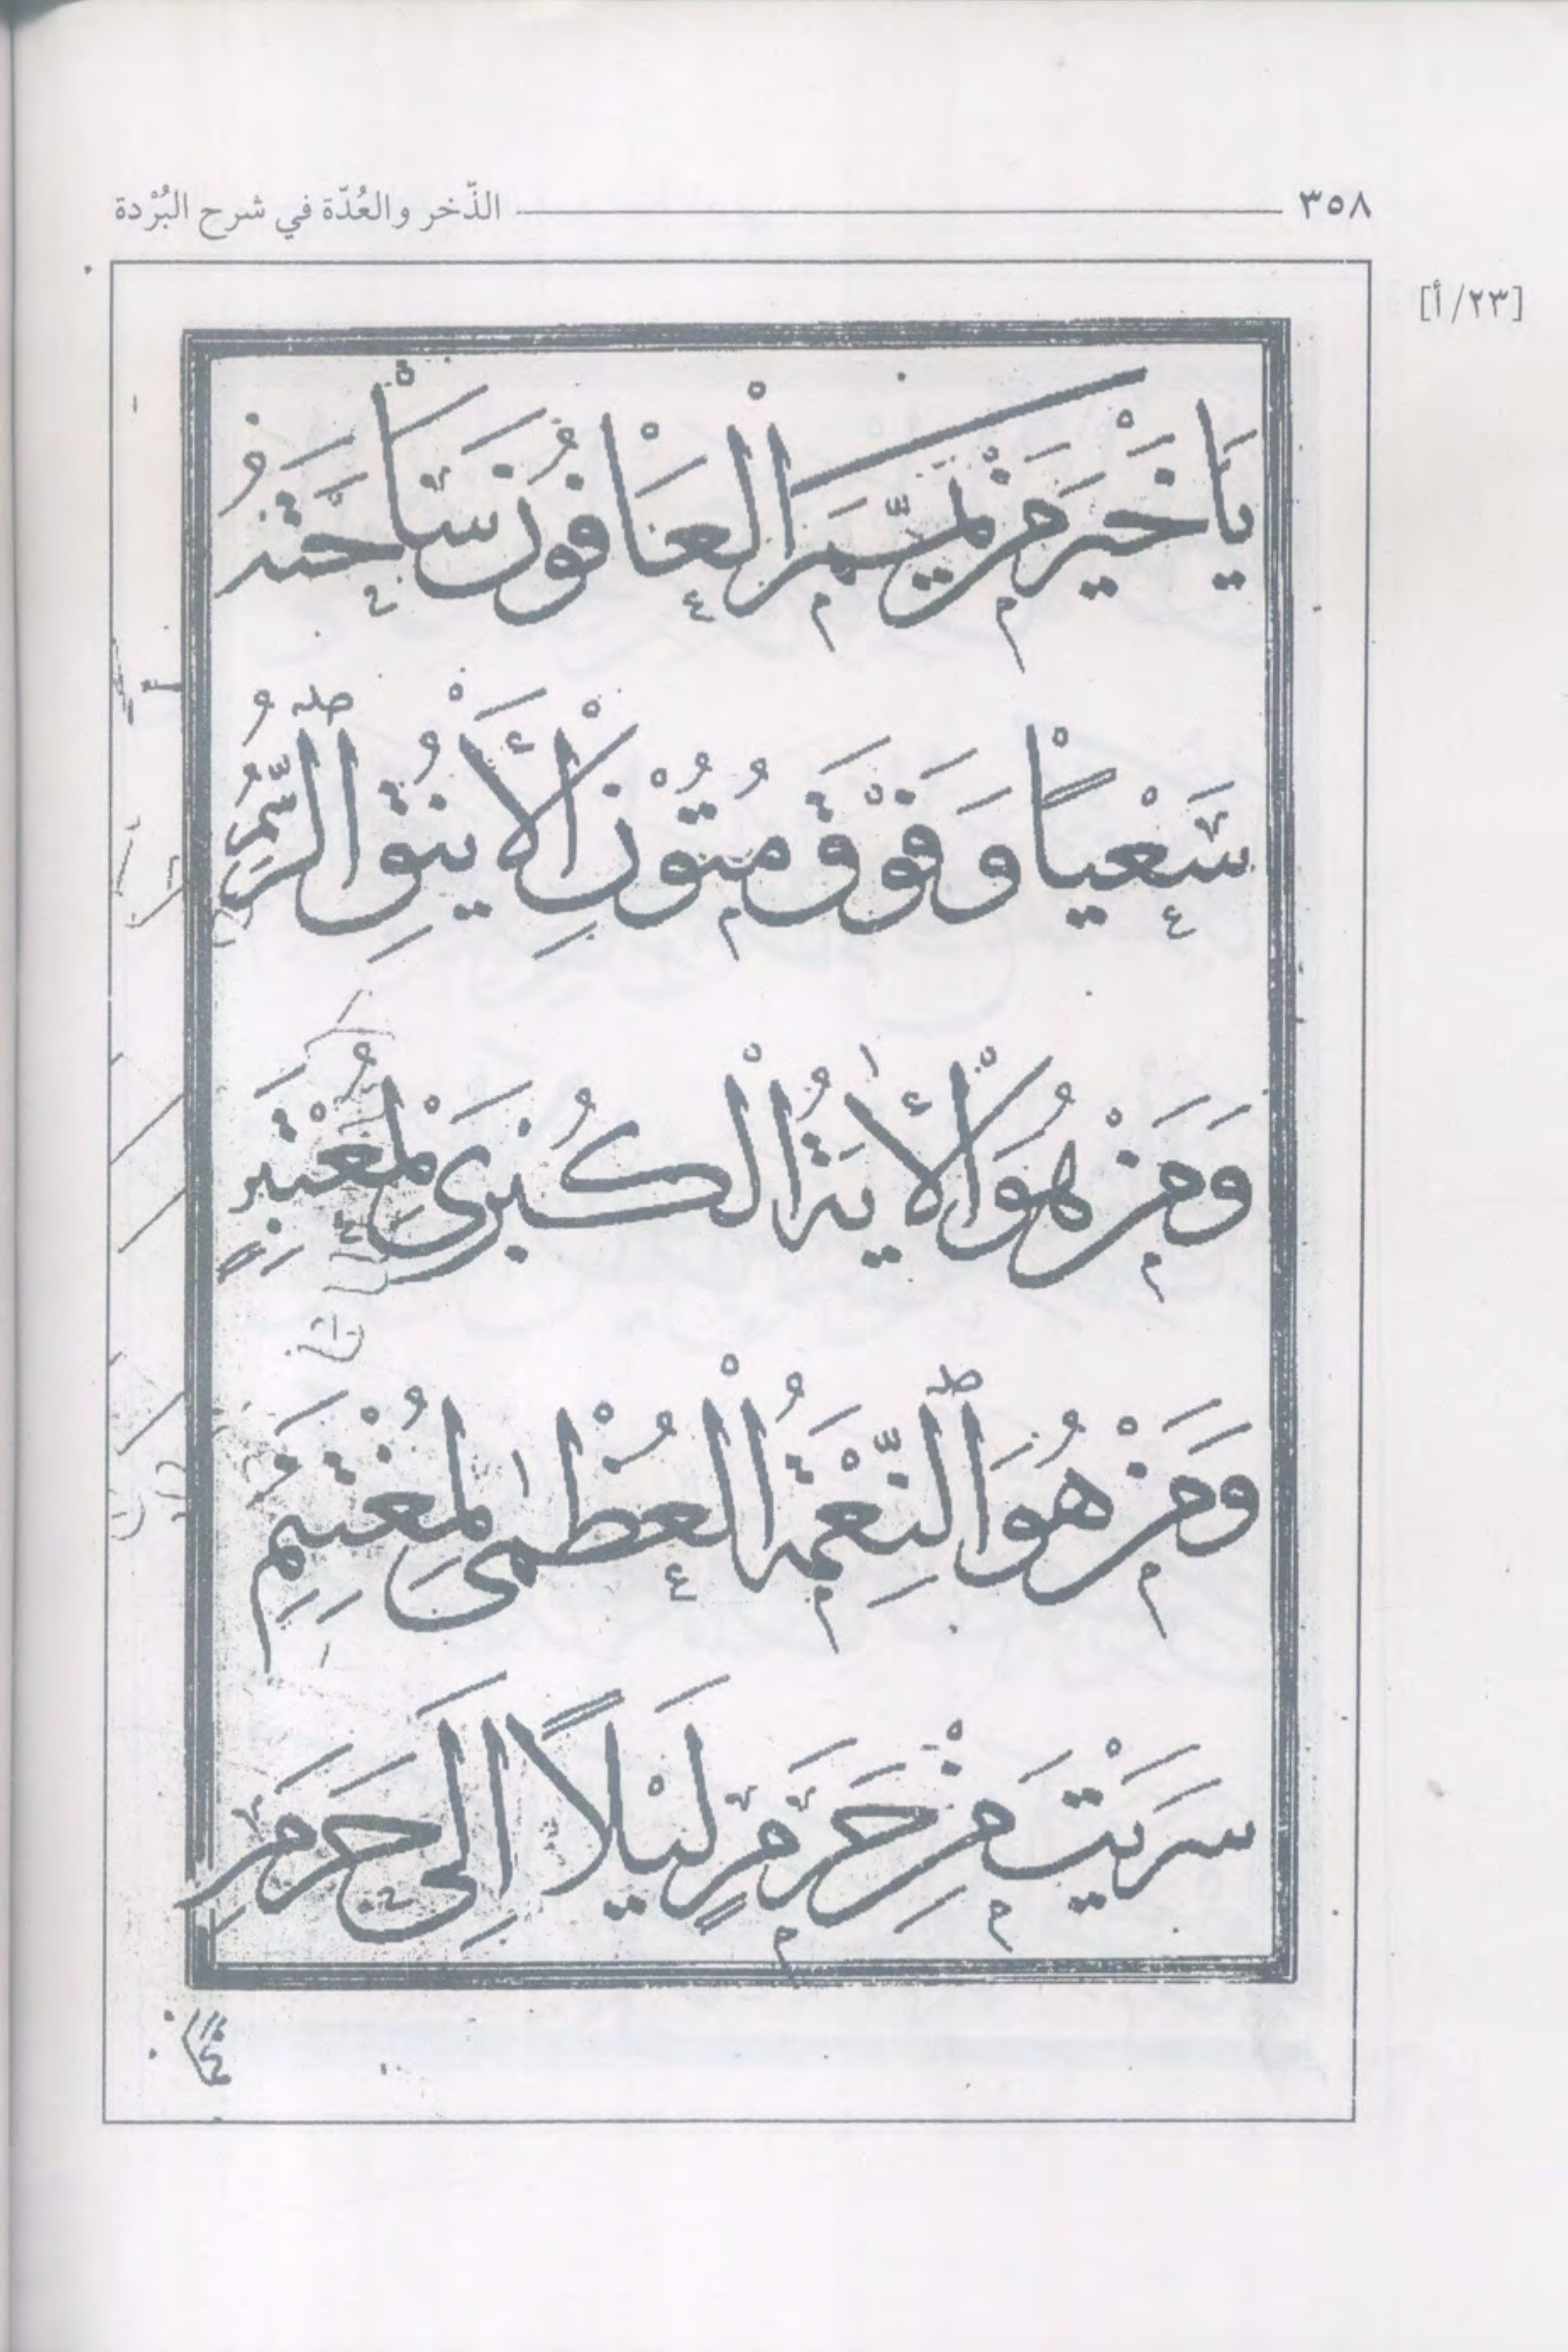 ٣٥٨ الذّخر والعُدّة في شرح البُرْدة
[٢٣/أ]
يَا خَيْرَ مَنْ يَمَّمَ الْعَافُونَ سَاحَتَهُ
سَعْيًا وَفَوْقَ مُتُوْنِ الْأَيْنُقِ الرُّسُمِ
وَمَنْ هُوَ الْأٰيَةُ الْكُبْرَىٰ لِمُعْتَبِرٍ
وَمَنْ هُوَ النِّعْمَةُ الْعُظْمٰى لِمُغْتَنِمِ
سَرَيْتَ مِنْ حَرَمٍ لَيْلًا اِلَى حَرَمِ